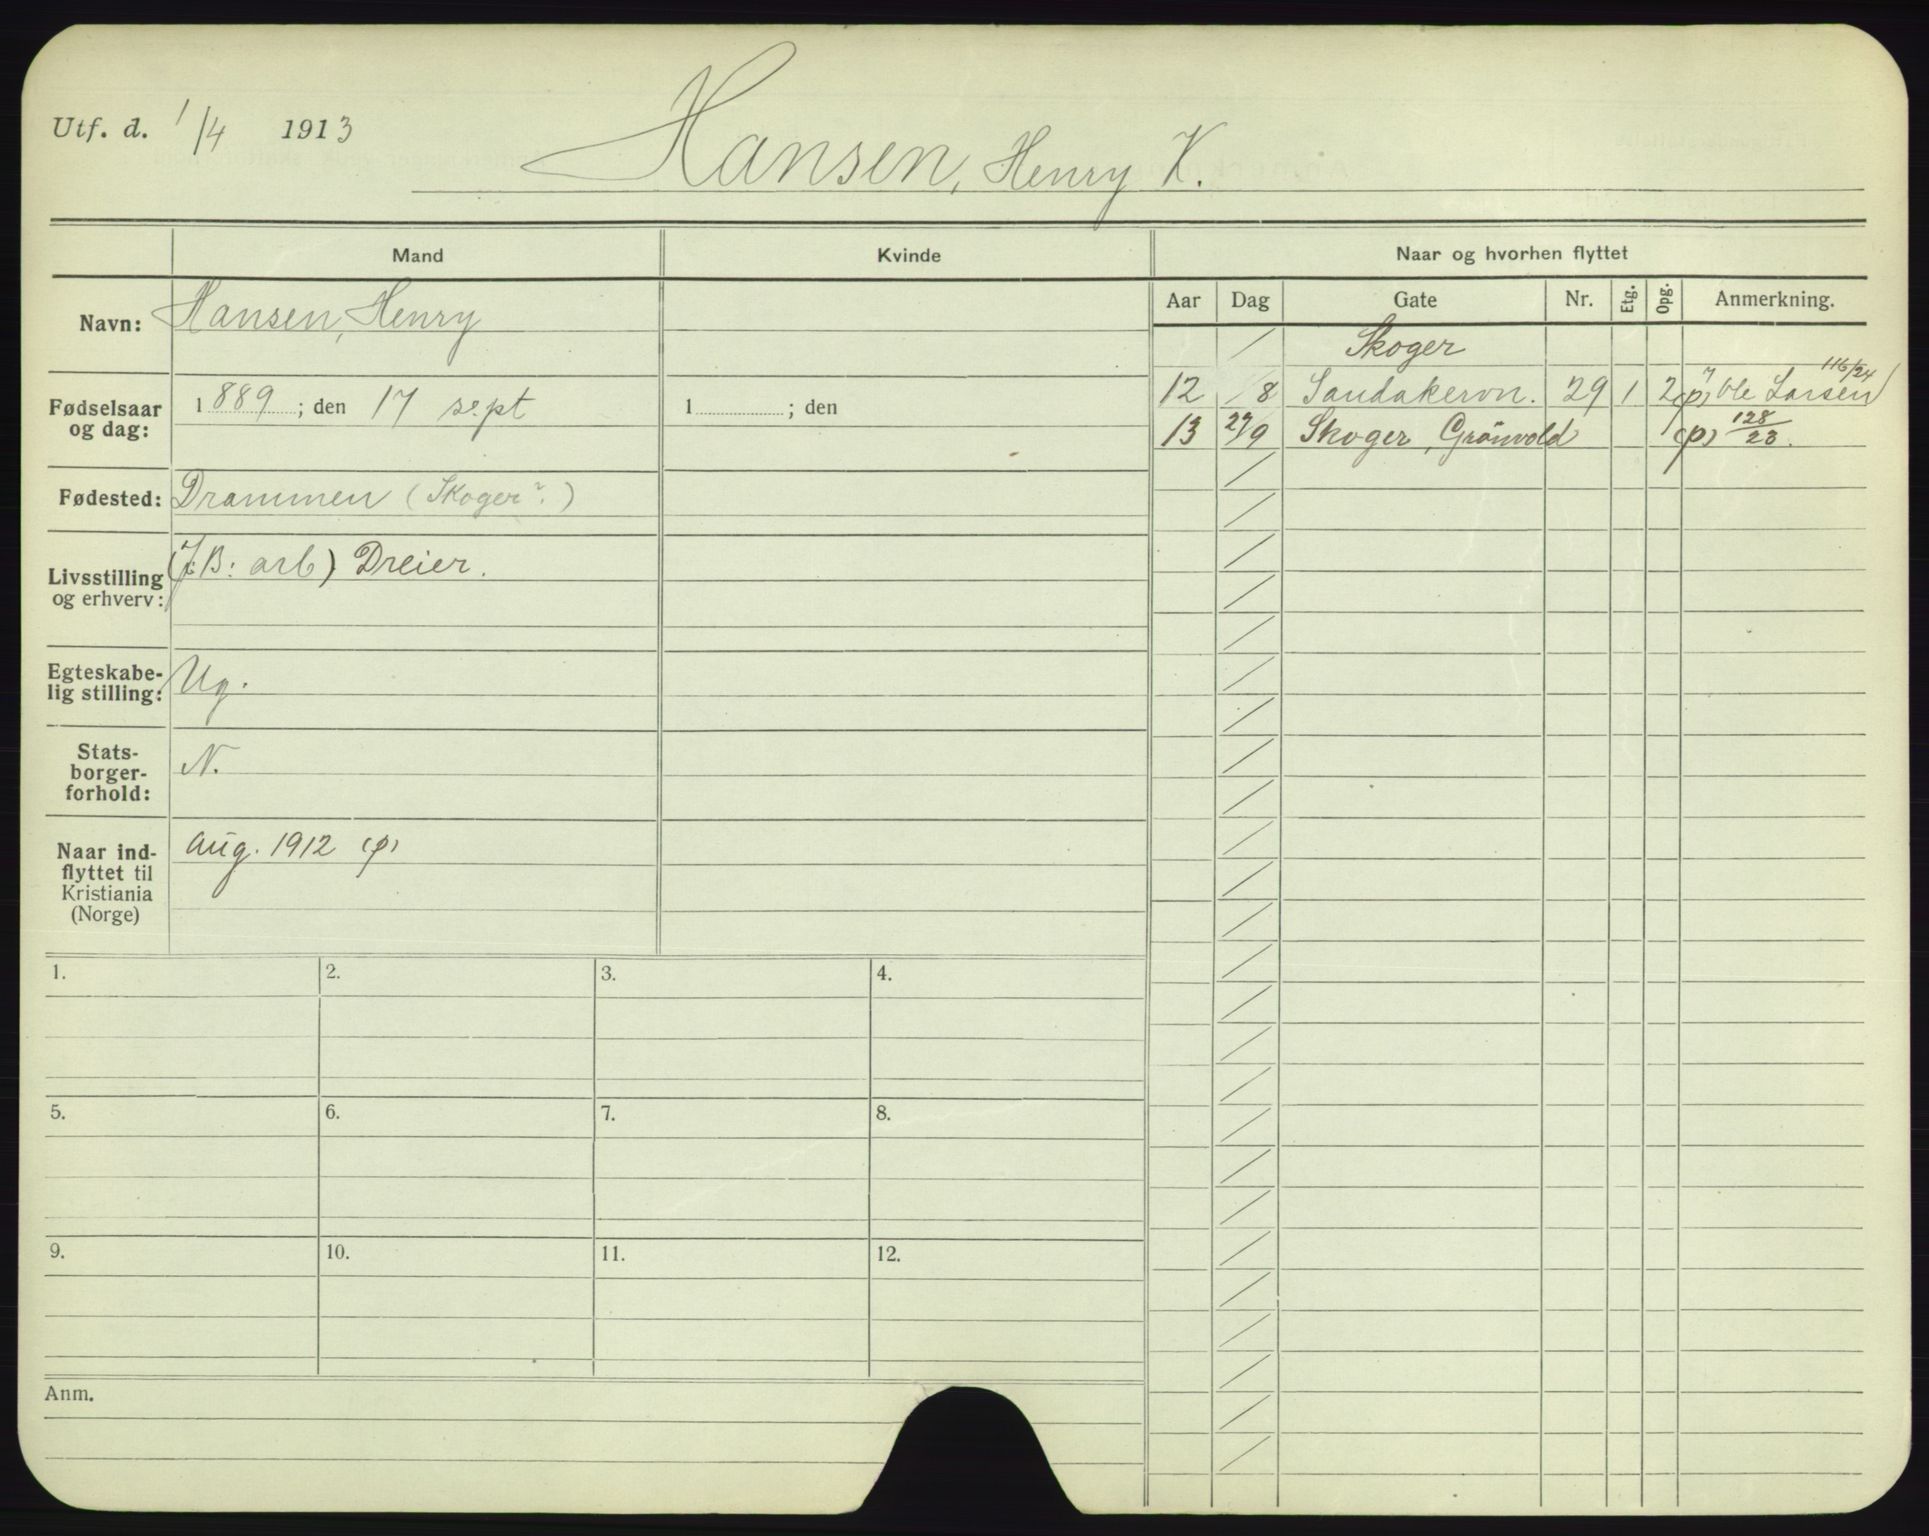 Utf. d. 1/4 1913
Hansen, Henry K.
Mand Kvinde Naar og hvorhen flyttet
Aar Dag Gate Nr. Etg. Opg. Anmerkning.
Navn: Hansen, Henry
Fødselsaar og dag: 1889; den 17 sept 1 ; den
Fødested: Drammen (Skoger?)
Livsstilling og erhverv: B: arb) Dreier.
Egteskabe-
lig stilling: Ug.
Stats-
borger-
forhold: N.
Naar ind-
flyttet til
Kristiania
(Norge) Aug. 1912 (p)
/ Skoger
116/24
12 /8 Sandakervn. 29 1 2 (p) Ole Larsen
13 27/9 Skoger, Grönvold (p) 128/23.
1. 2. 3. 4.
5. 6. 7. 8.
9. 10. 11. 12.
Anm.